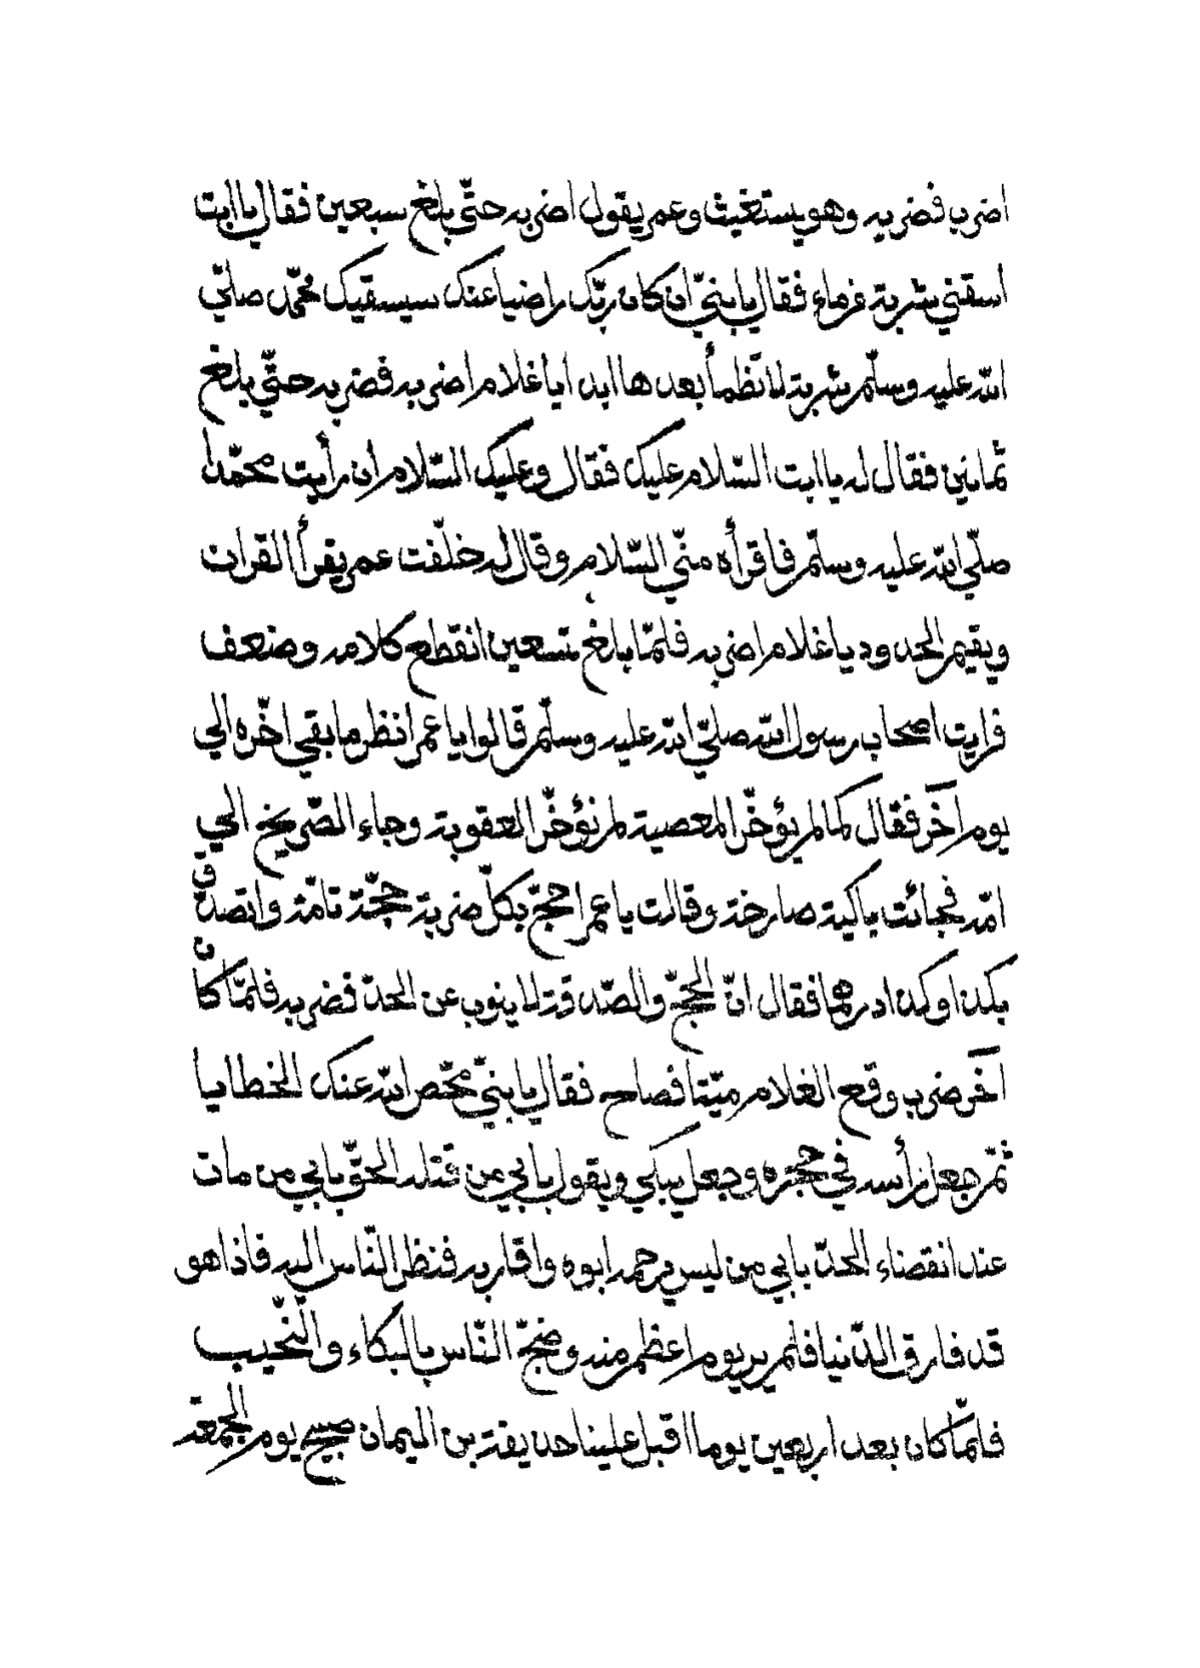 اضرب فضربه وهو يستغيث وعمر يقول اضربه حتّي بلغ سبعين فقال يا ابت
أسقني شربة فرماء فقال يا بنيّ ان كان ربّك راضيا عنك سيسقيك محمّد صلّي
الله عليه وسلّم شربة لا تظمأ بعدها ابدا يا غلام اضربه فضربه حتّي بلغ
ثمانين فقال له يا ابت السّلام عليك فقال وعليك السّلام ان رأيت محمّدا
صلّي الله عليه وسلّم فاقرأه منّي السّلام وقال له خلّفت عمر يقرأ القران
ويقيم الحدود يا غلام اضربه فلمّا بلغ تسعين انقطع كلامه وضعف
فرايت اصحاب رسول الله صلّي الله عليه وسلّم قالوا يا عمر انظر ما بقي اخّره الي
يوم آخر فقال كما لم يؤخّر المعصية لم نؤخّر العقوبة وجاء الصّريخ الي
امّه فجائت باكية صارخة وقالت يا عمر احجّ بكلّ ضربة حجّة تامّة واتصدّق
بكذا وكذا درهما فقال انّ الحجّ والصّدقة لا ينوب عن الحدّ فضربه فلمّا كان
آخر ضرب وقع الغلام ميّتا فصاح فقال يا بنيّ محّص الله عنك الخطايا
ثمّ جعل رأسه في حجره وجعل يبكي ويقول بابي من قتله الحقّ بابي من مات
عند انقضاء الحدّ بابي من ليس يرحمه ابوه واقاربه فنظر النّاس اليه فاذا هو
قد فارق الدّنيا فلم ير يوم اعظم منه وضجّ النّاس بالبكاء والنّحيب
فلمّا كان بعد اربعين يوما اقبل علينا حذيفة بن اليمان صبيح يوم الجمعة